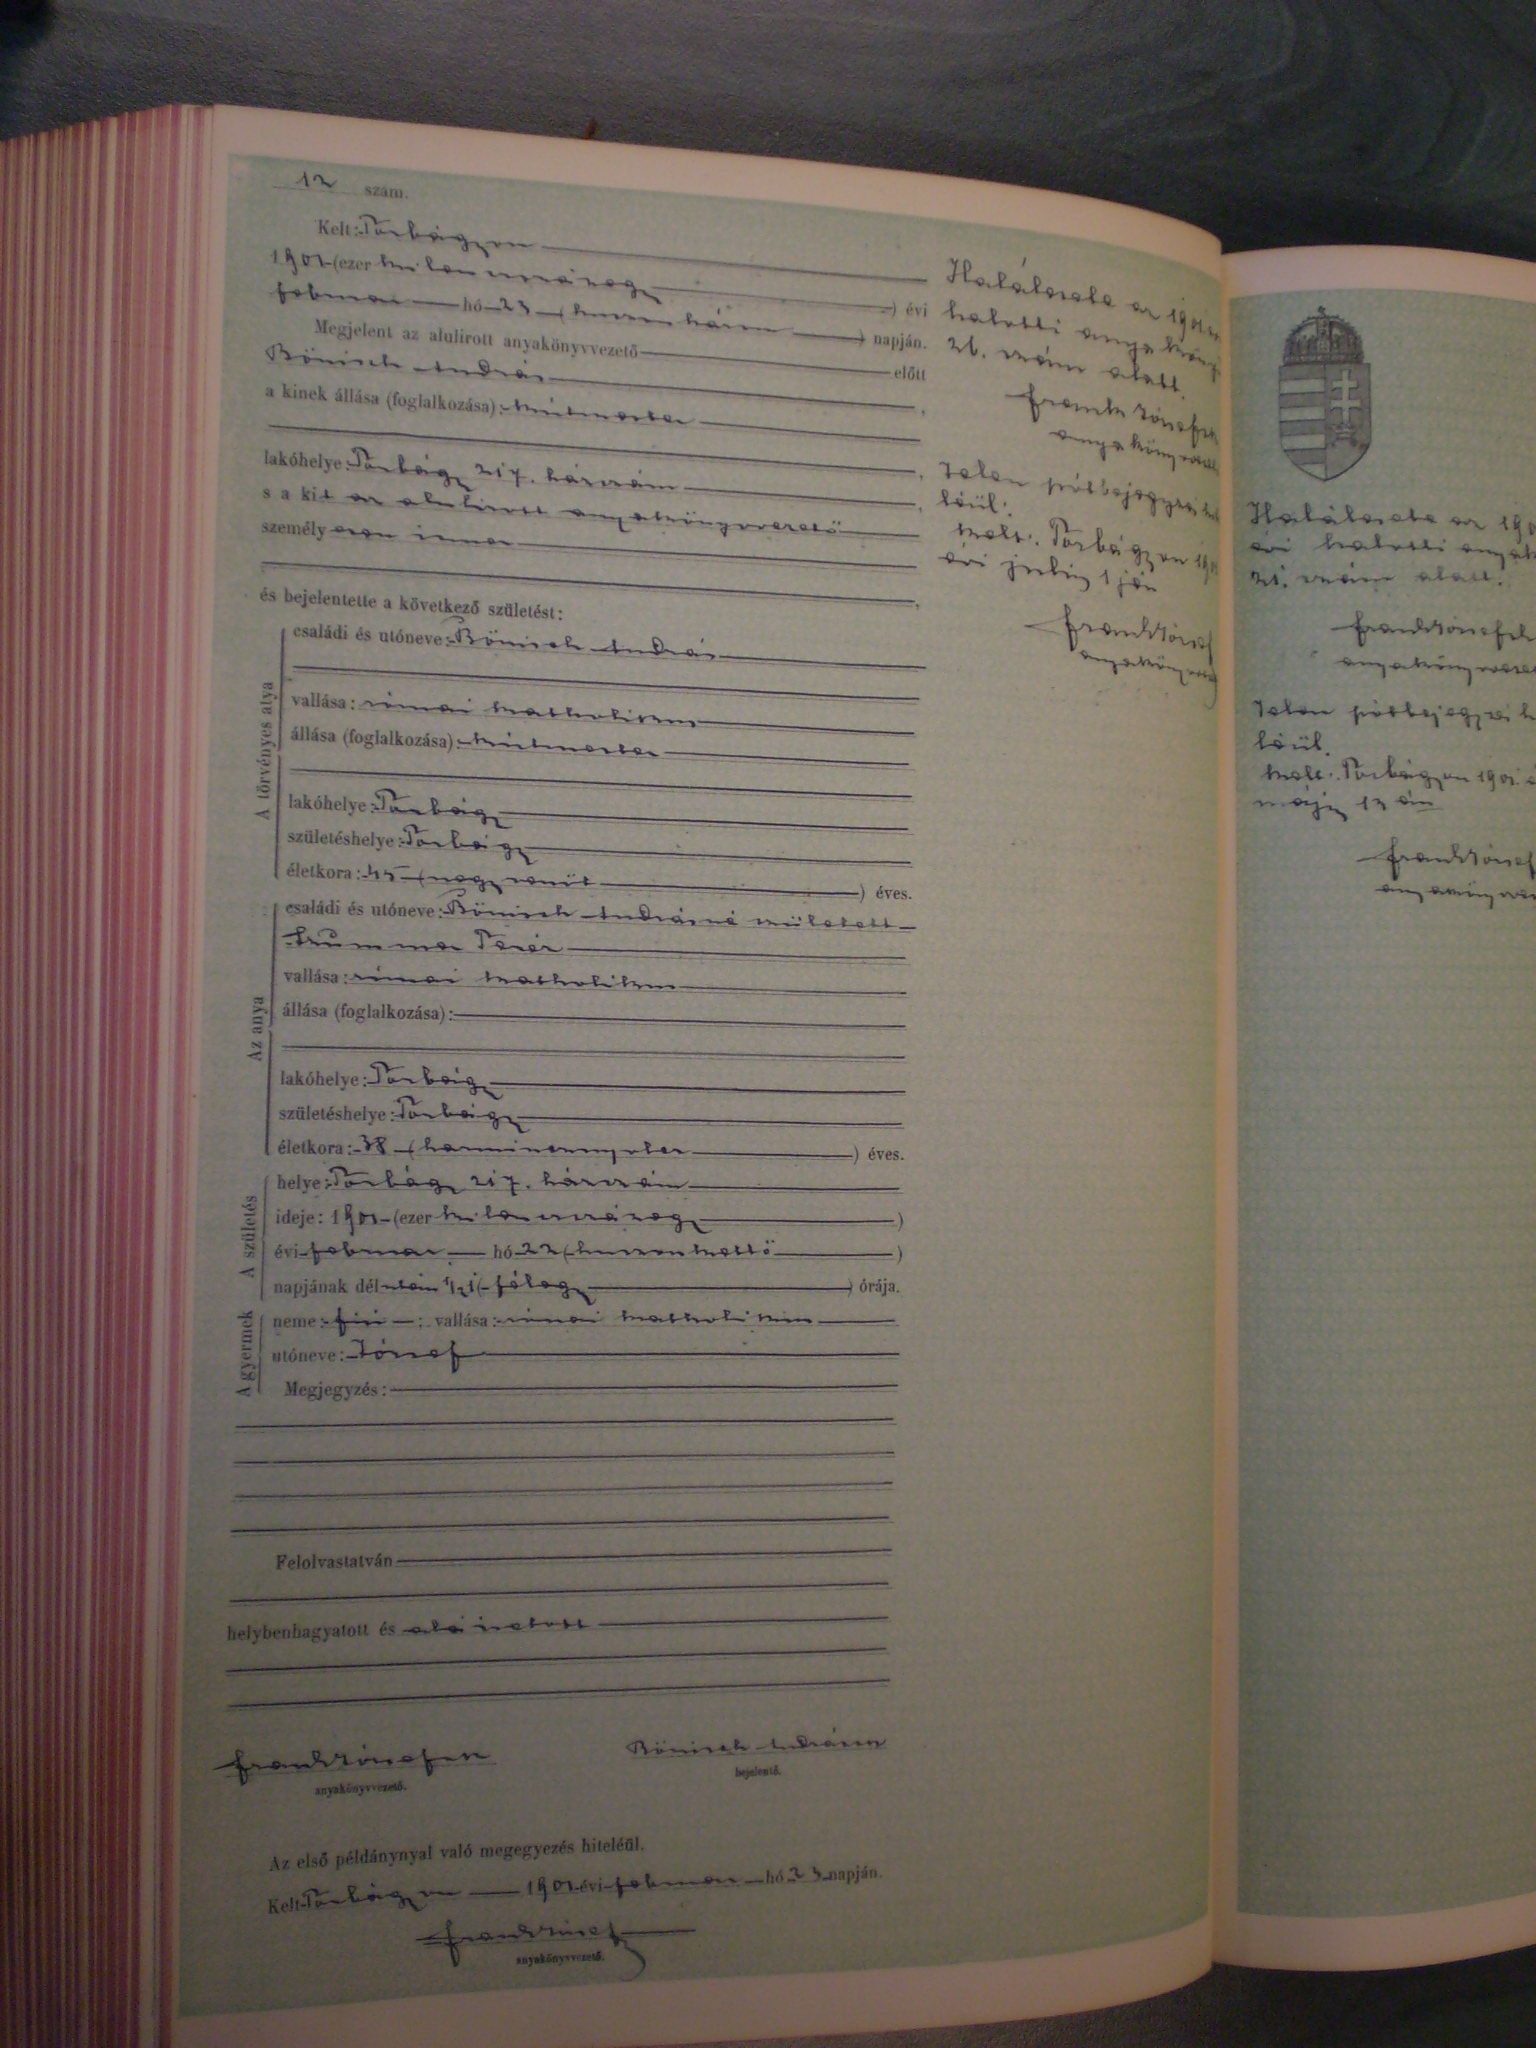 12 szám.
Kelt: Torbágyon
1901 (ezer kilenczszázegy) évi
februar hó 23 (huszonhárom) napján.
Megjelent az alulirott anyakönyvvezető előtt
Römisch András,
a kinek állása (foglalkozása):
lakóhelye: Torbágy 217. házszám,
s a kit az alulirott anyakönyvvezető
személyesen ismer,
és bejelentette a következő születést:
A törvényes atya
családi és utóneve: Römisch András
vallása: római katholikus
állása (foglalkozása):
lakóhelye: Torbágy
születéshelye: Torbágy
életkora: 45 (negyvenöt) éves.
Az anya
családi és utóneve: Römisch Andrásné született
Teréz
vallása: római katholikus
állása (foglalkozása):
lakóhelye: Torbágy
születéshelye: Torbágy
életkora: 38 (harmincznyolcz) éves.
A születés
helye: Torbágy 217. házszám
ideje: 1901 (ezer kilenczszázegy)
évi februar hó 22 (huszonkettő)
napjának délután ½1 (félegy) órája.
A gyermek
neme: fiú; vallása: római katholikus
utóneve: József
Megjegyzés:
Felolvastatván
helybenhagyatott és aláiratott
Frank József
anyakönyvvezető.
Römisch András
bejelentő.
Az első példánynyal való megegyezés hiteléül.
Kelt Torbágyon 1901 évi februar hó 23 napján.
Frank József
anyakönyvvezető.
Halálesete az 1901
halotti anyakönyv
26. szám alatt.
Frank József
Jelen pótbejegyzés
léül:
Kelt: Torbágyon
évi julius 1 jén
Frank József
Halálesete az
évi halotti
21. szám alatt.
Frank József
Jelen pótbejegyzés
léül.
Kelt: Torbágyon 1901.
május 12 én
Frank József